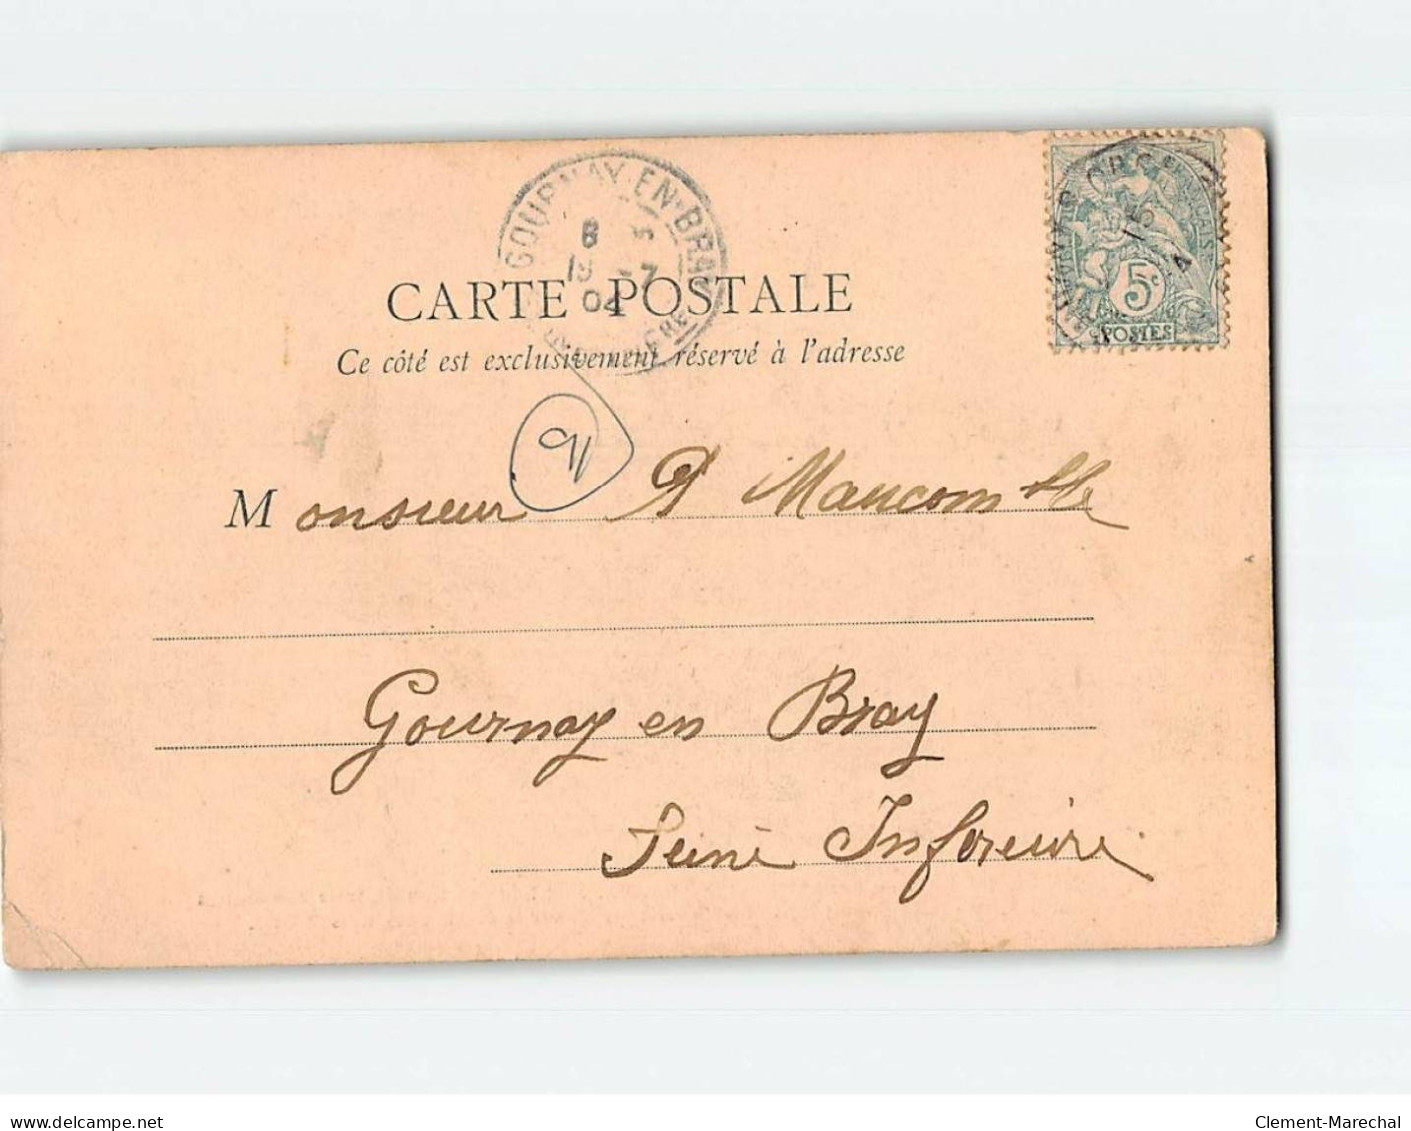 GOURNAY-EN-BRAY
8
5
19 -7
04
5c
POSTES
CARTE POSTALE
Ce côté est exclusivement réservé à l'adresse
Monsieur Maucomble
Gournay en Bray
Seine Inférieure
www.delcampe.net
Clement-Marechal